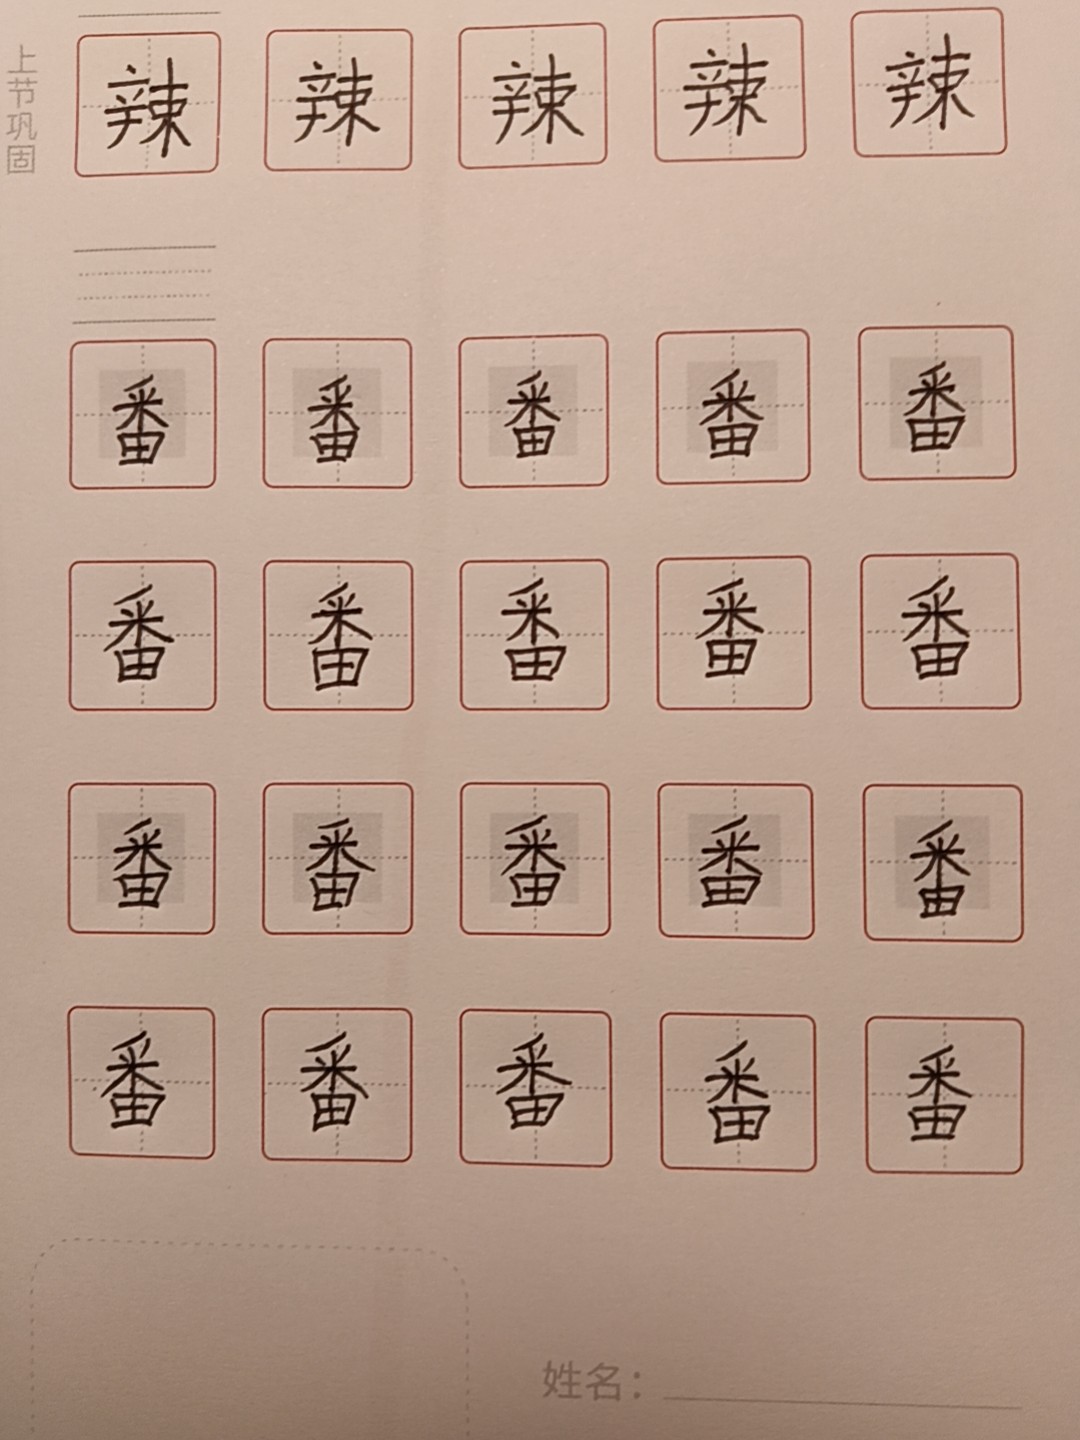 上节巩固
辣 辣 辣 辣 辣
番 番 番 番 番
番 番 番 番 番
番 番 番 番 番
番 番 番 番 番
姓名：